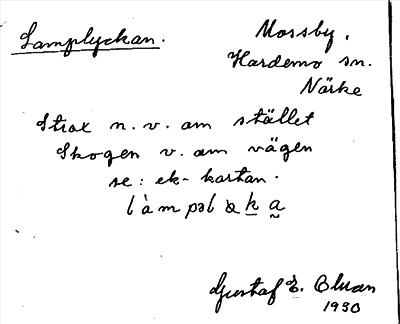 Lamplyckan.
Mossby,
Hardemo sn.
Närke
Strax n. v. om stället
Skogen v. om vägen
se: ek-kartan.
Gustaf E.
1930